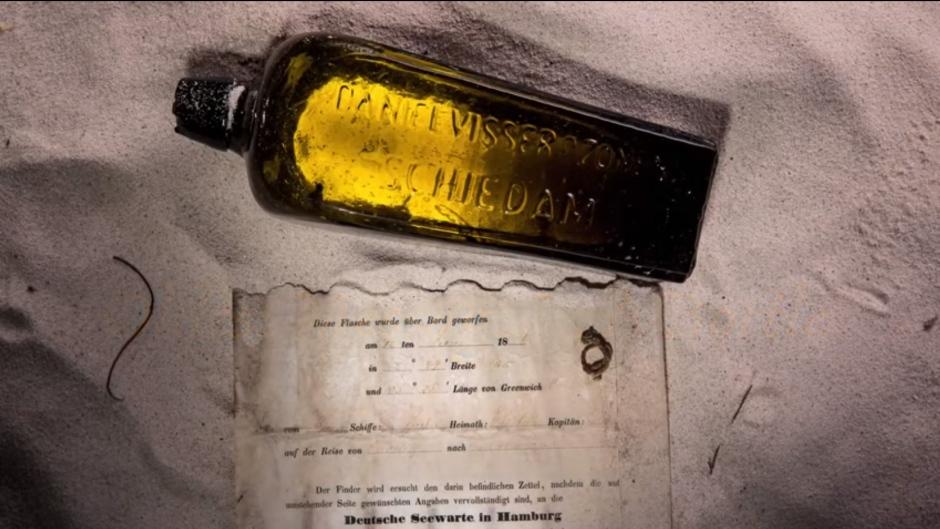 DANIEL VISSER & ZONEN
SCHIEDAM
Diese Flasche wurde über Bord geworfen
am ten 18
in ° ' Breite
und ° ' Länge von Greenwich
vom Schiffe: Heimath: Kapitän:
auf der Reise von nach
Der Finder wird ersucht den darin befindlichen Zettel, nachdem die auf
umstehender Seite gewünschten Angaben vervollständigt sind, an die
Deutsche Seewarte in Hamburg